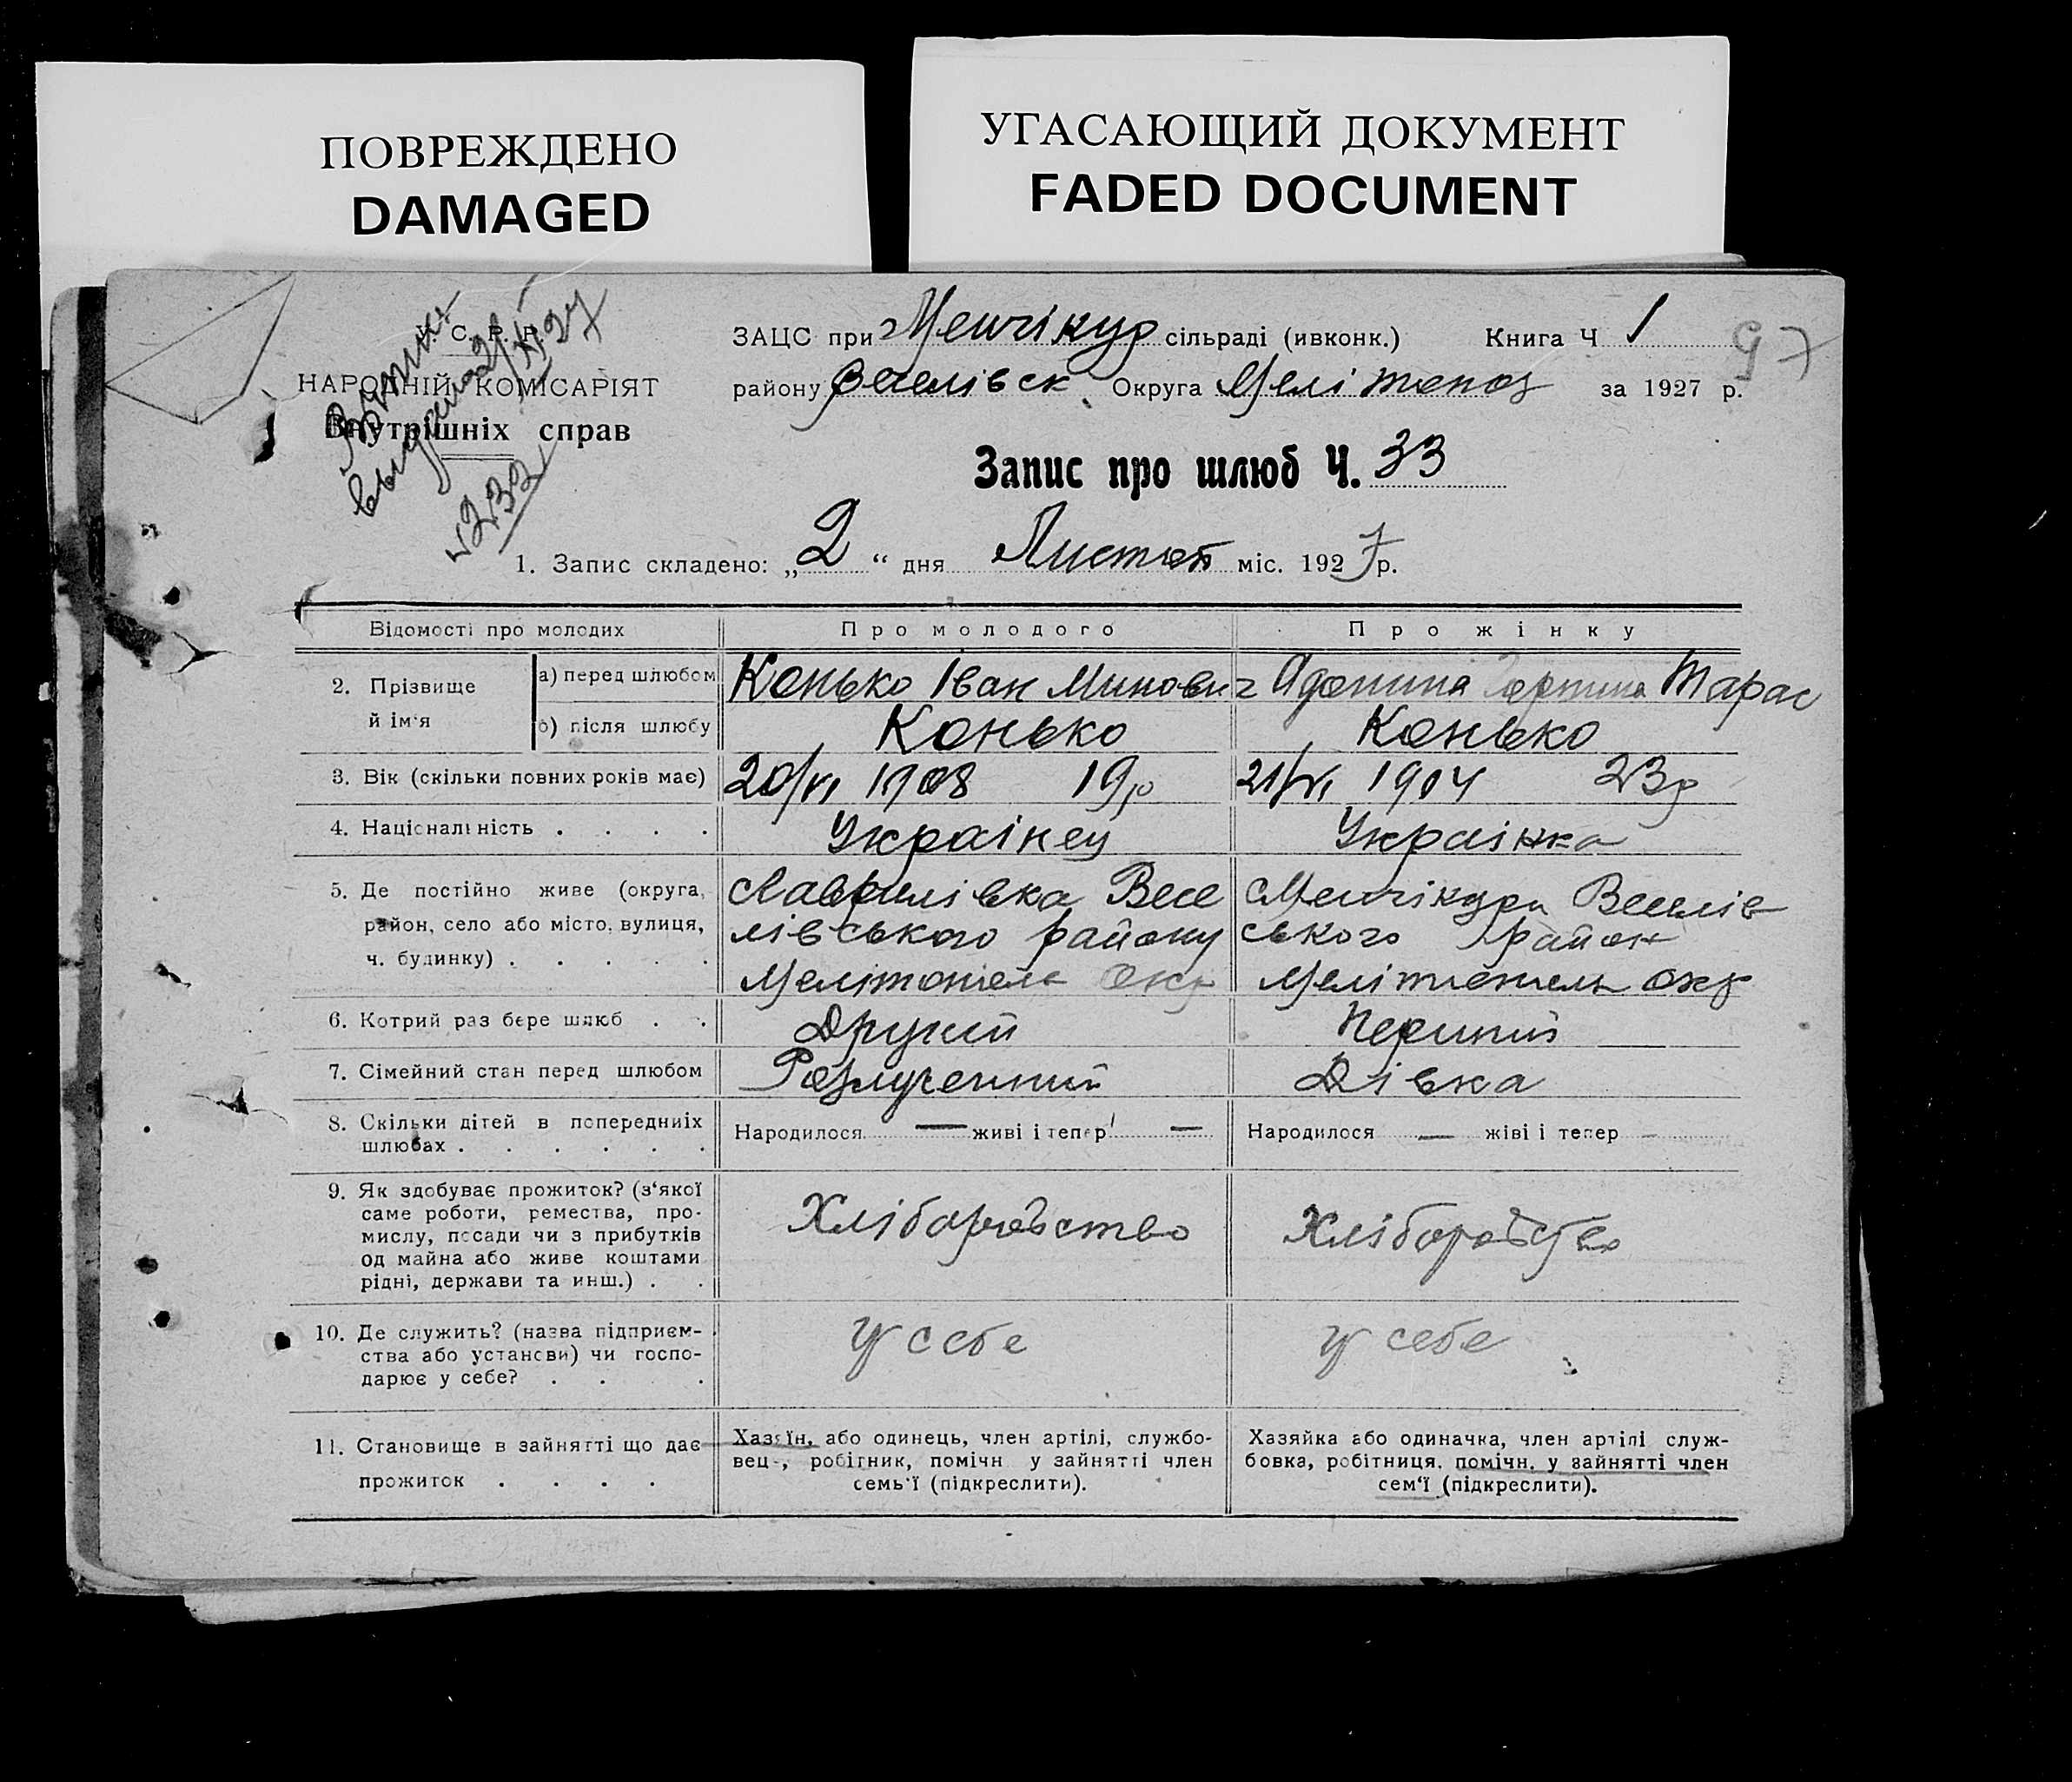 ПОВРЕЖДЕНО
DAMAGED
УГАСАЮЩИЙ ДОКУМЕНТ
FADED DOCUMENT
У. С. Р. Р.
НАРОДНІЙ КОМІСАРІЯТ
Внутрішніх справ
Виписк
выдана 2/XI 27
№ 232
ЗАЦС при Менчікур сільраді (ивконк.) Книга Ч 1
97
району Веселівск Округа Мелітопол за 1927 р.
Запис про шлюб Ч. 33
1. Запис складено: „2“ дня Листоп міс. 1927 р.
Відомості про молодих Про молодого Про жінку
2. Прізвище й ім‘я
а) перед шлюбом Конько Іван Минович Тарас
б) після шлюбу Конько Конько
3. Вік (скільки повних років має) 20/VI 1908 19р 21/VI 1904 23р
4. Національність . . . . Украінец Украінка
5. Де постійно живе (округа, район, село або місто, вулиця, ч. будинку) . . . . .
Гаврилівка Весе
лівського району
Мелітопель Окр
Менчікури Веселів
ського район
Мелітопель окр
6. Котрий раз бере шлюб . . Другий Перший
7. Сімейний стан перед шлюбом Разлученний Дівка
8. Скільки дітей в попередниіх шлюбах . . . . . . Народилося — живі і тепер — Народилося — жіві і тепер —
9. Як здобуває прожиток? (з‘якої
саме роботи, ремества, про-
мислу, посади чи з прибутків
од майна або живе коштами
рідні, держави та инш.) . .
Хліборобство Хліборобство
10. Де служить? (назва підприєм-
ства або установи) чи госпо-
дарює у себе? . . .
У себе у себе
11. Становище в зайнятті що дає
прожиток . . . .
Хазяїн, або одинець, член артілі, службо-
вець, робітник, помічн у зайнятті член
семь‘ї (підкреслити).
Хазяйка або одиначка, член артілі служ-
бовка, робітниця, помічн. у зайнятті член
сем‘ї (підкреслити).